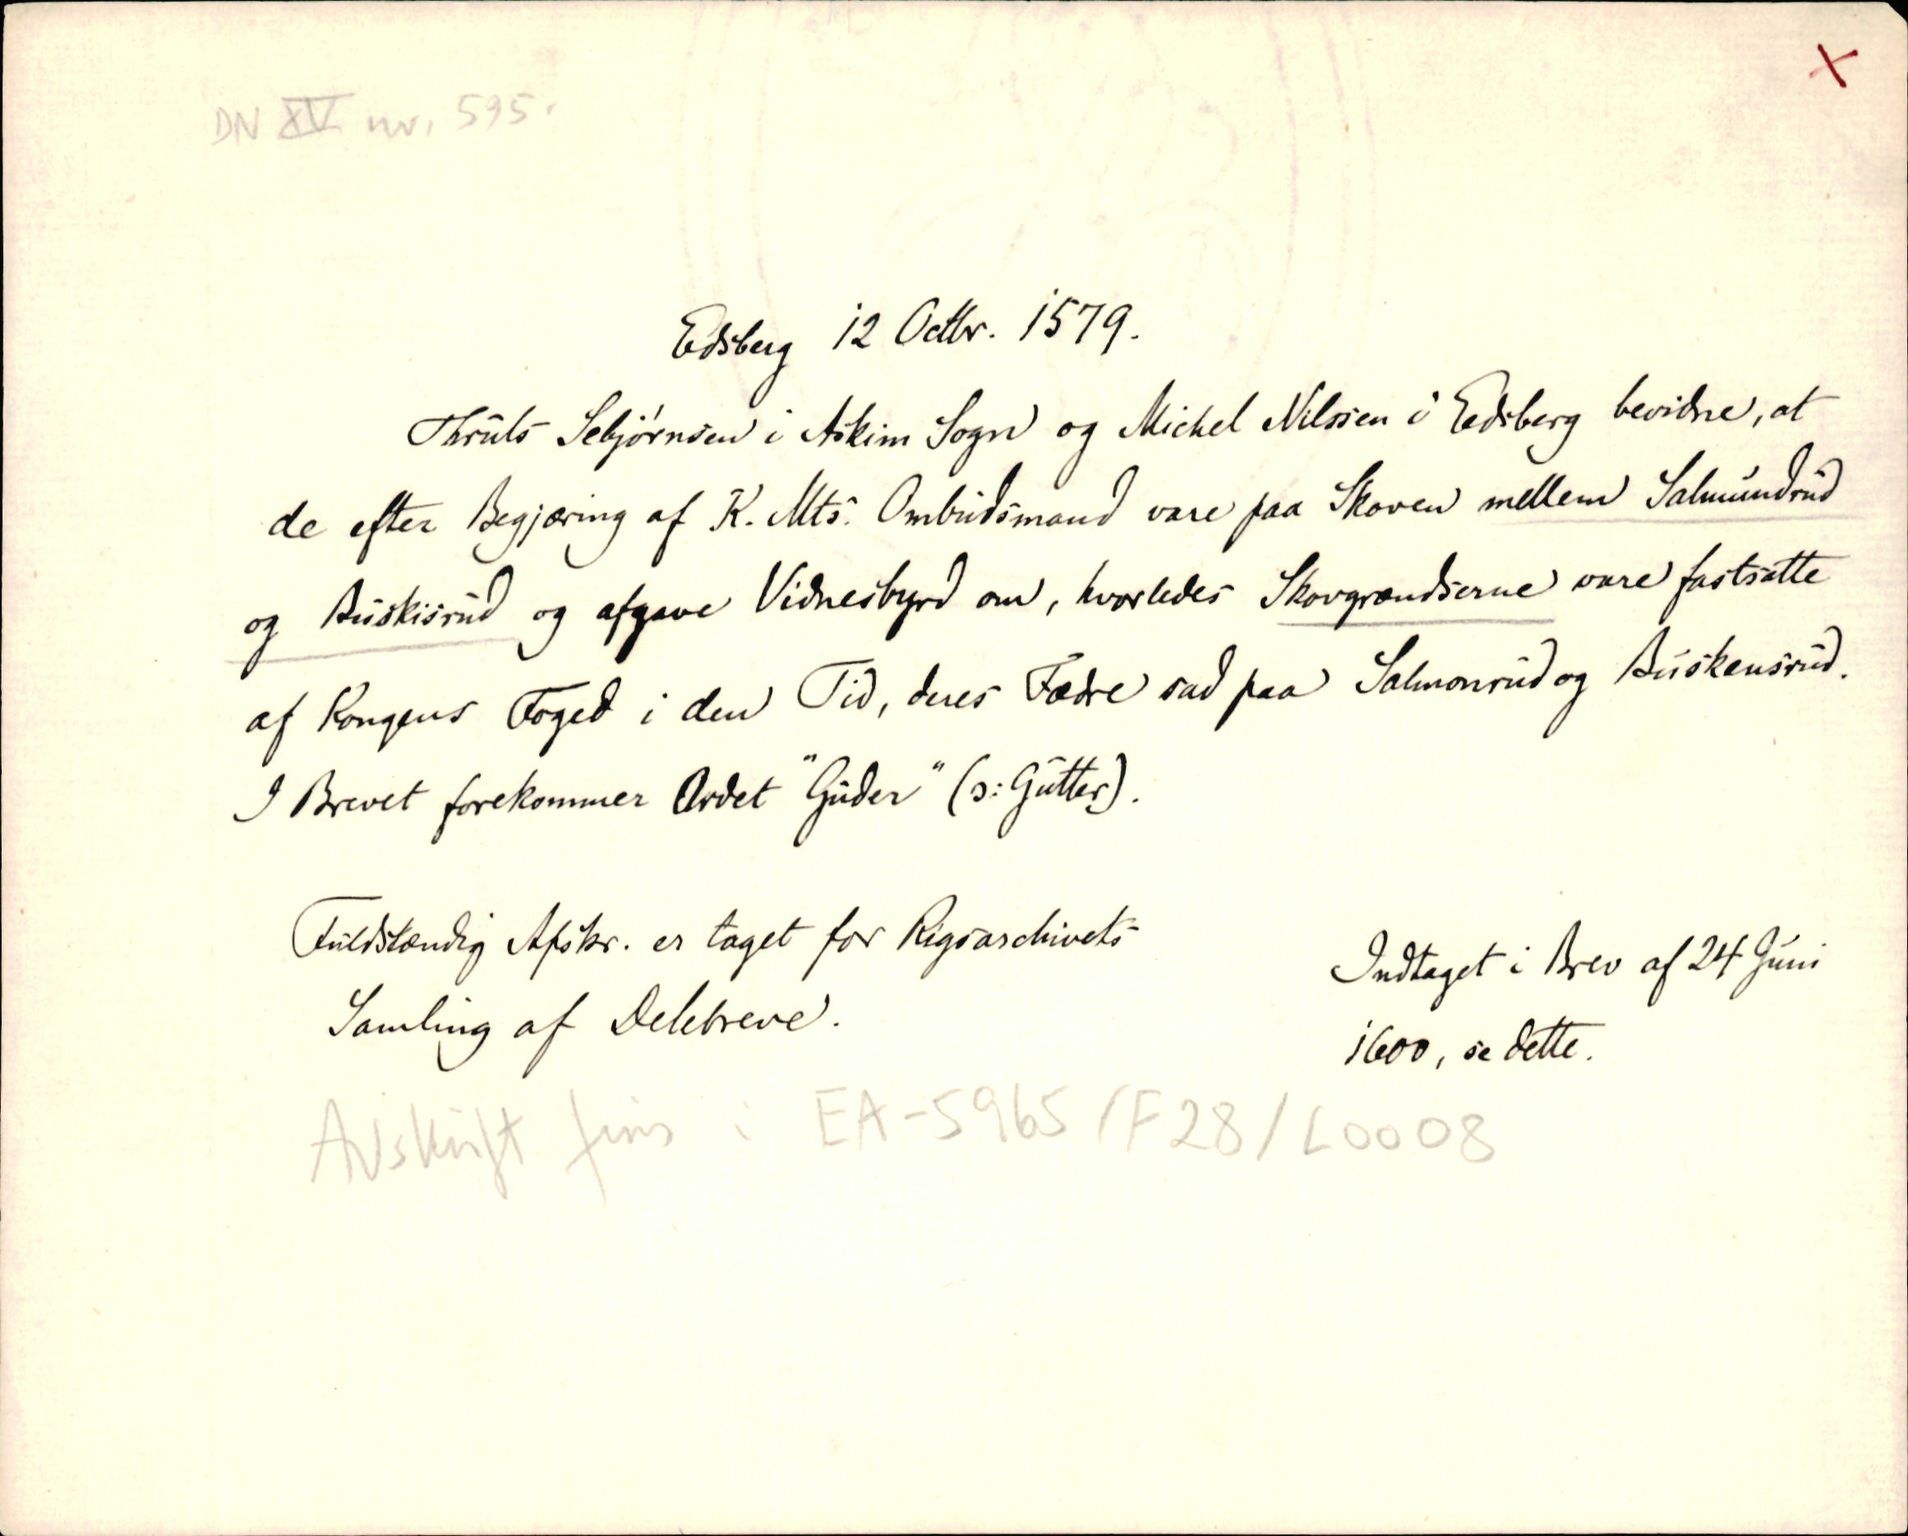 X
DN XV nr. 595.
Edsberg 12 Octbr. 1579.
Thruls Sebjørnsen i Askim Sogn og Michel Nilssen i Edsberg bevidne, at
de efter Begjæring af K. Mts. Ombudsmand vare paa Skoven mellem Salmundrud
og Buskisrud og afgave Vidnesbyrd om, hvorledes Skovgrændserne vare fastsatte
af Kongens Foged i den Tid, deres Fædre sad paa Salmonrud og Buskensrud.
I Brevet forekommer Ordet "Guder" (ɔ: Gutter).
Fuldstændig Afskr. er taget for Rigsarchivets
Samling af Delebreve.
Indtaget i Brev af 24 Juni
1600, se dette.
Avskrift fins i EA-5965/F28/L0008